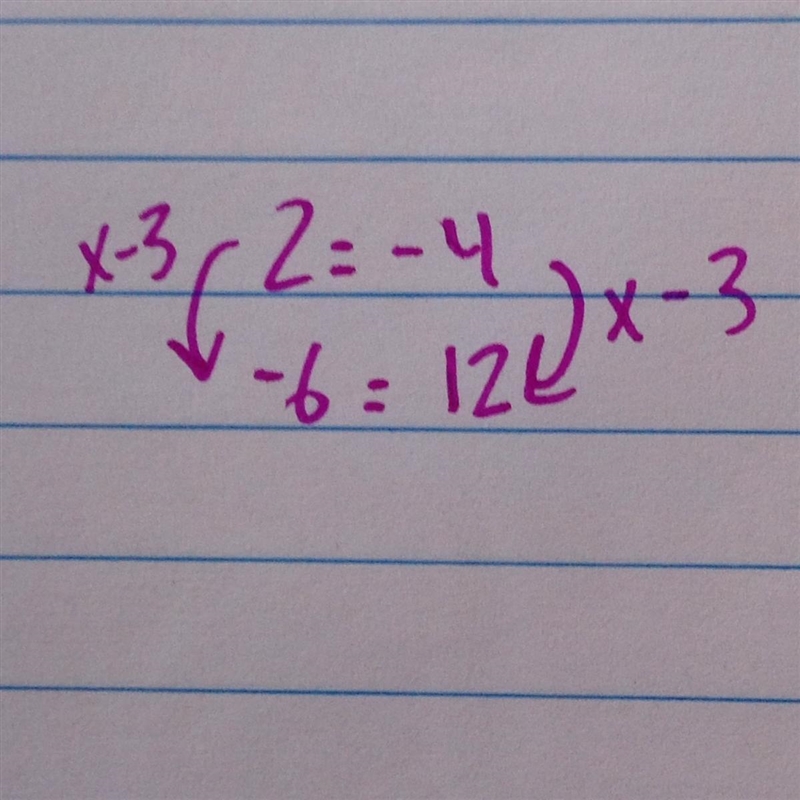 x-3 2 = -4
-6 = 12 x-3